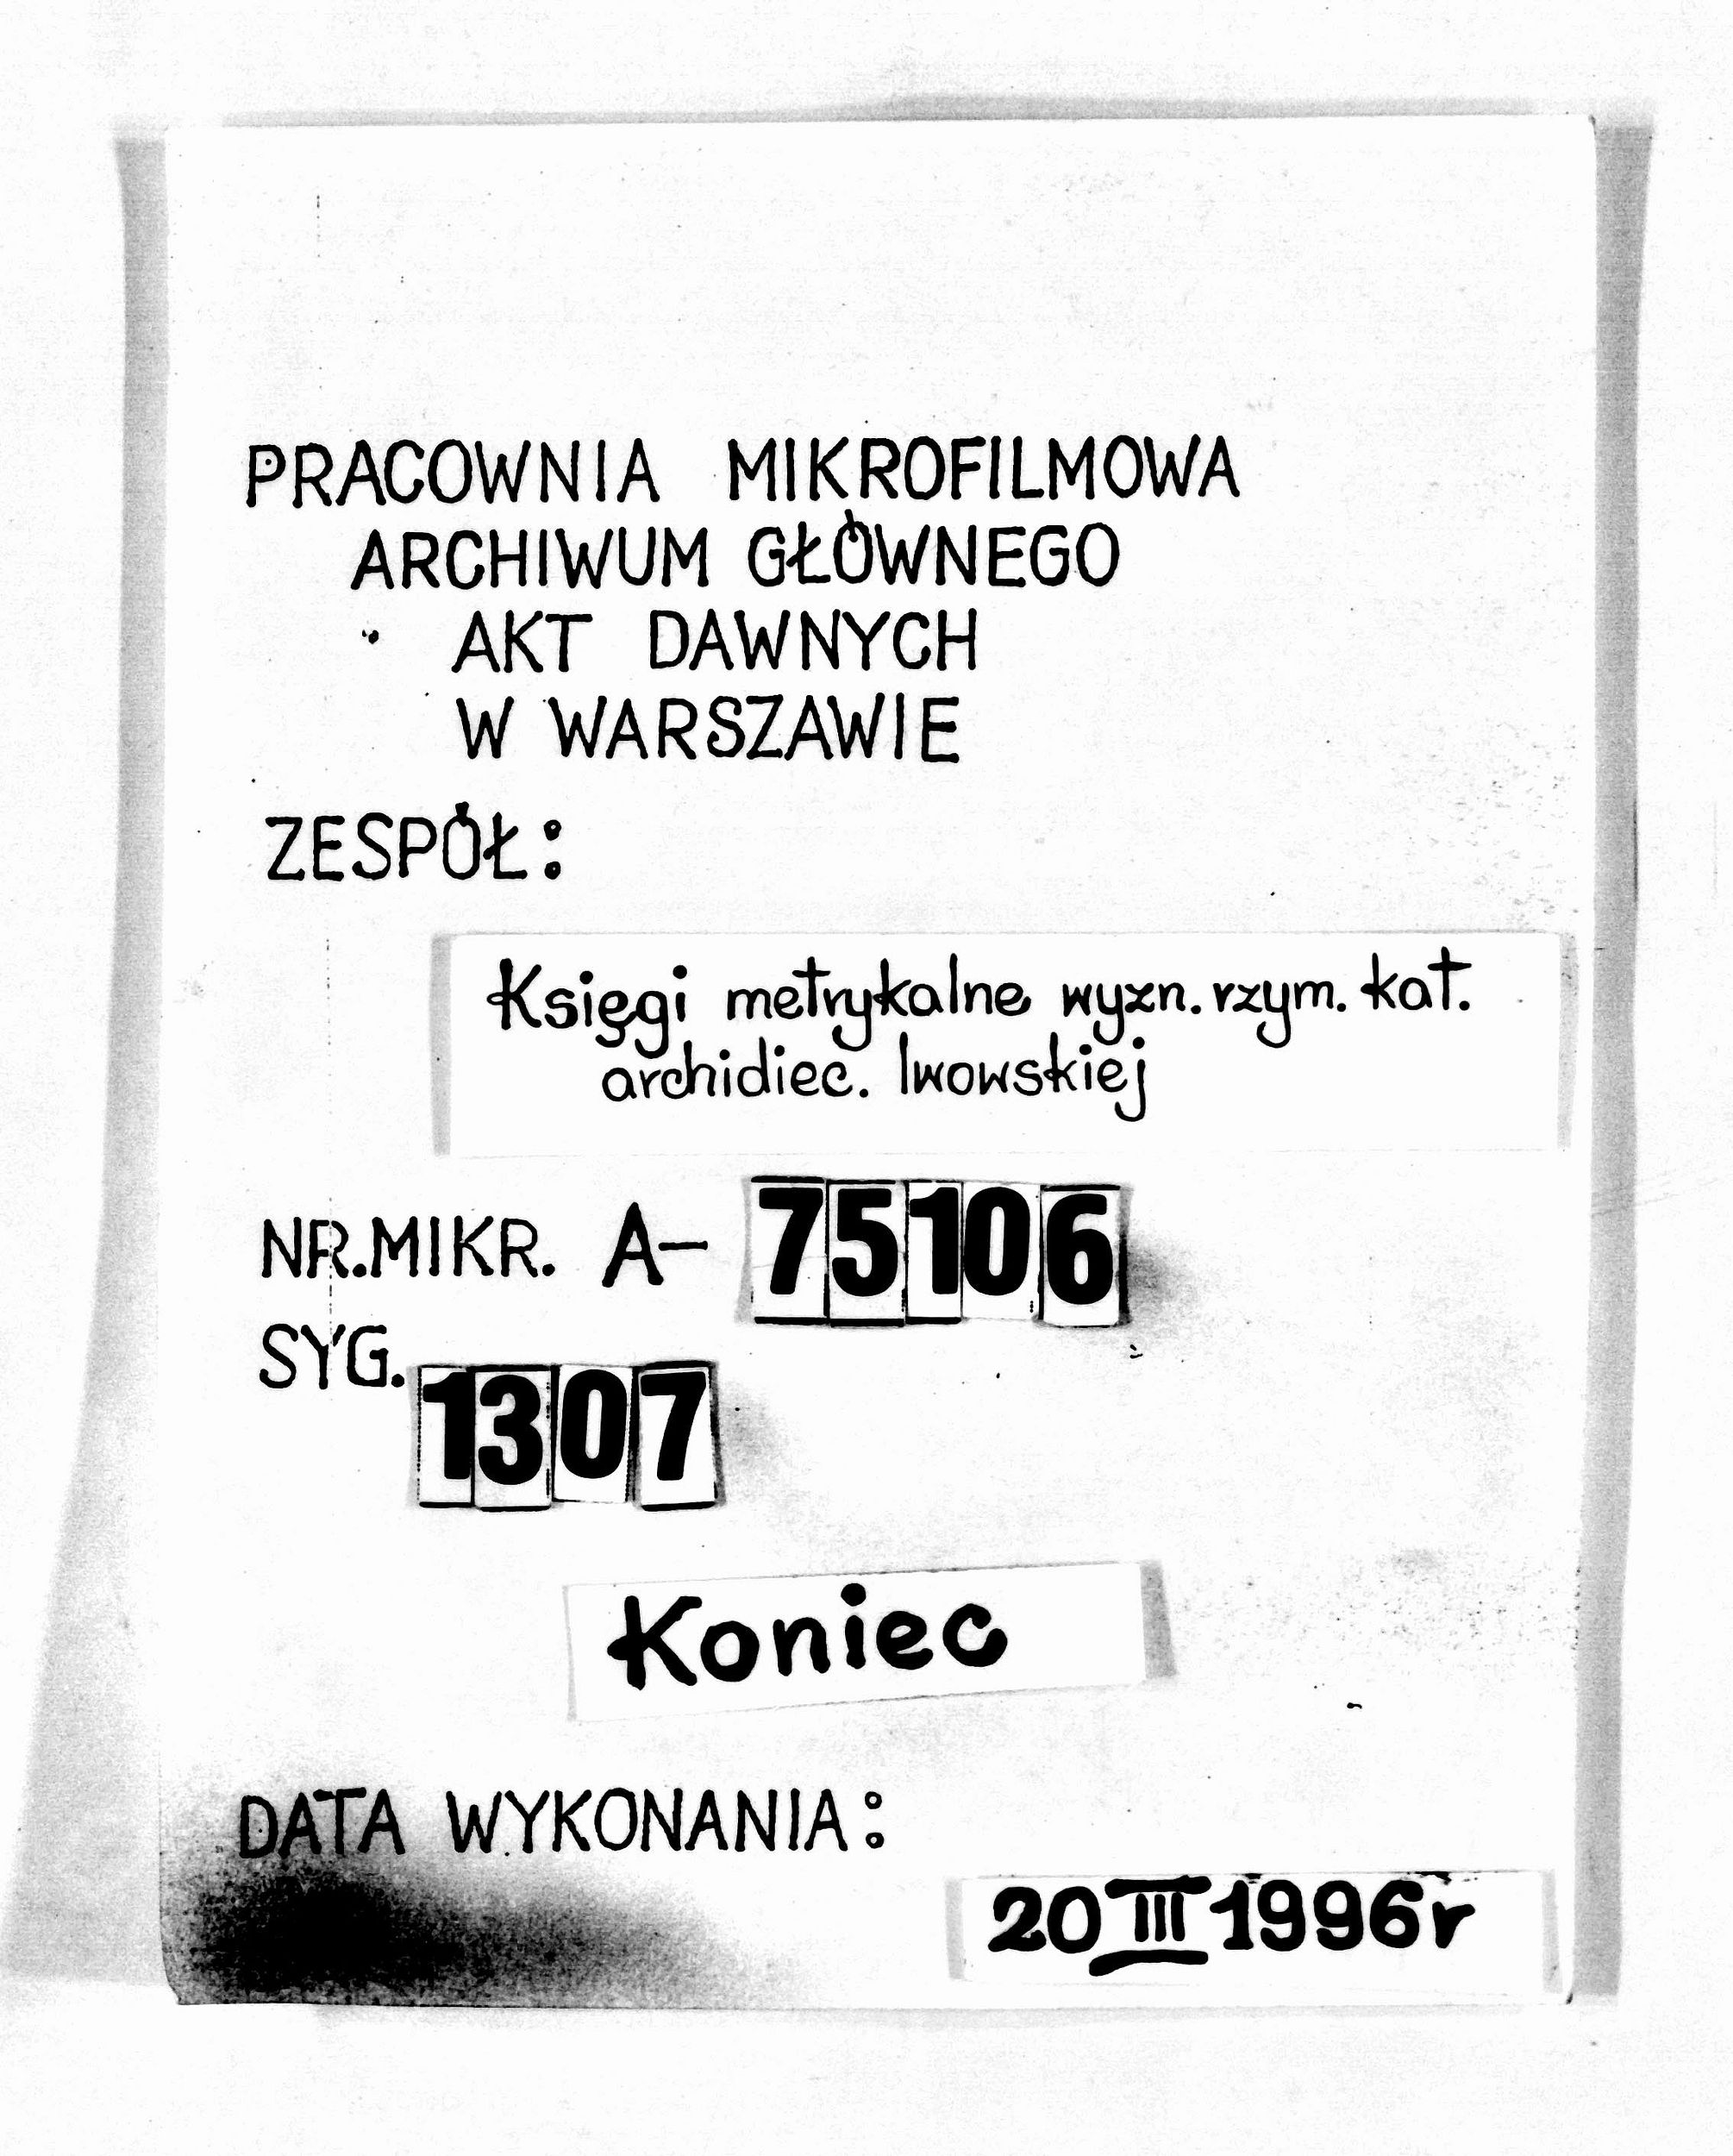 PRACOWNIA MIKROFILMOWA
ARCHIWUM GŁÓWNEGO
AKT DAWNYCH
W WARSZAWIE
ZESPÓŁ:
Księgi metrykalne wyzn. rzym. kat.
archidiec. lwowskiej
NR.MIKR. A- 75106
SYG. 1307
Koniec
DATA WYKONANIA:
20 III 1996r